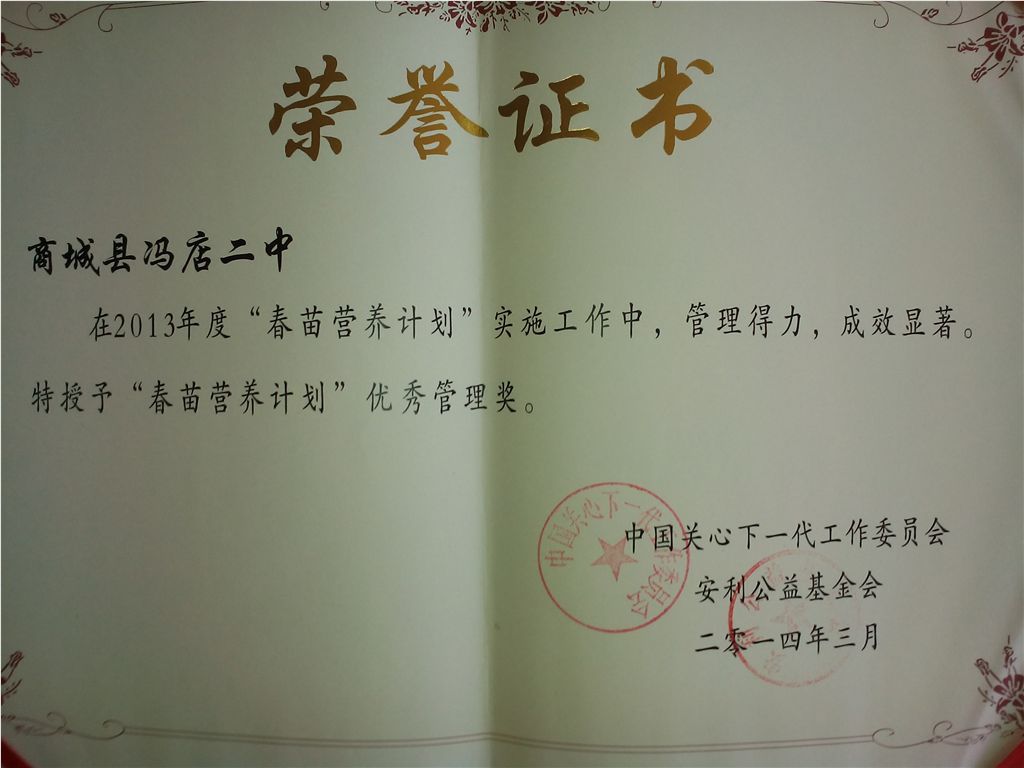 荣誉证书
商城县冯店二中
在2013年度“春苗营养计划”实施工作中，管理得力，成效显著。
特授予“春苗营养计划”优秀管理奖。
中国关心下一代工作委员会
中国关心下一代工作委员会
安利公益基金会
二零一四年三月